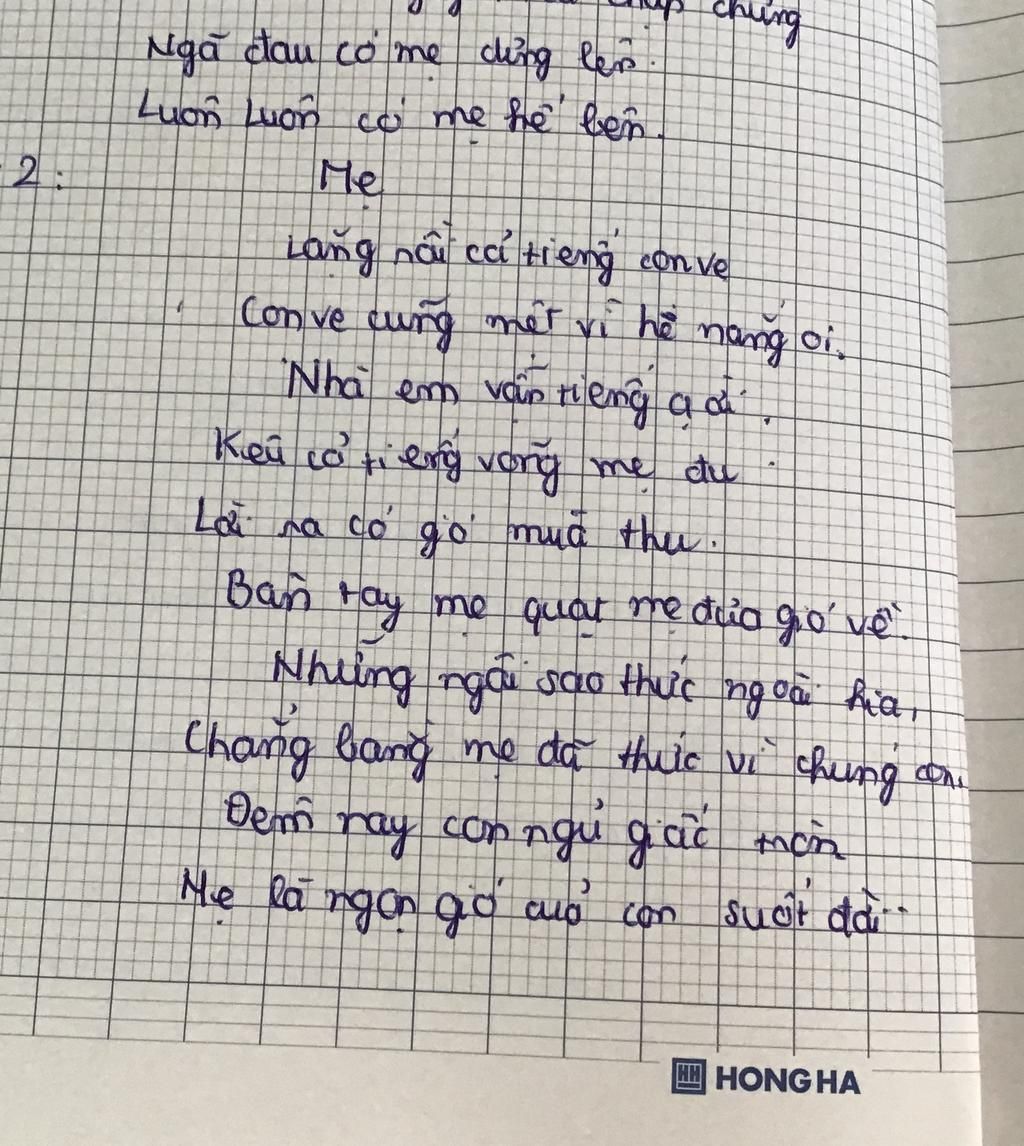 chập chững
Ngã đau có mẹ dừng lên.
Luôn Luôn có mẹ kề bên.
2: Mẹ
Lặng rồi cả tiếng con ve
Con ve cũng mệt vì hè nắng oi.
Nhà em vẫn tiếng ạ ời.
Kẽo cà tiếng võng mẹ du
Lời ra có gió muà thu.
Bàn tay mẹ quạt mẹ đưa gió về.
Những ngôi sao thức ngoài kia,
Chẳng bằng mẹ đã thức vì chúng con.
Đêm nay con ngủ giấc tròn
Mẹ là ngọn gió cuả con suốt đời..
HH HONG HA